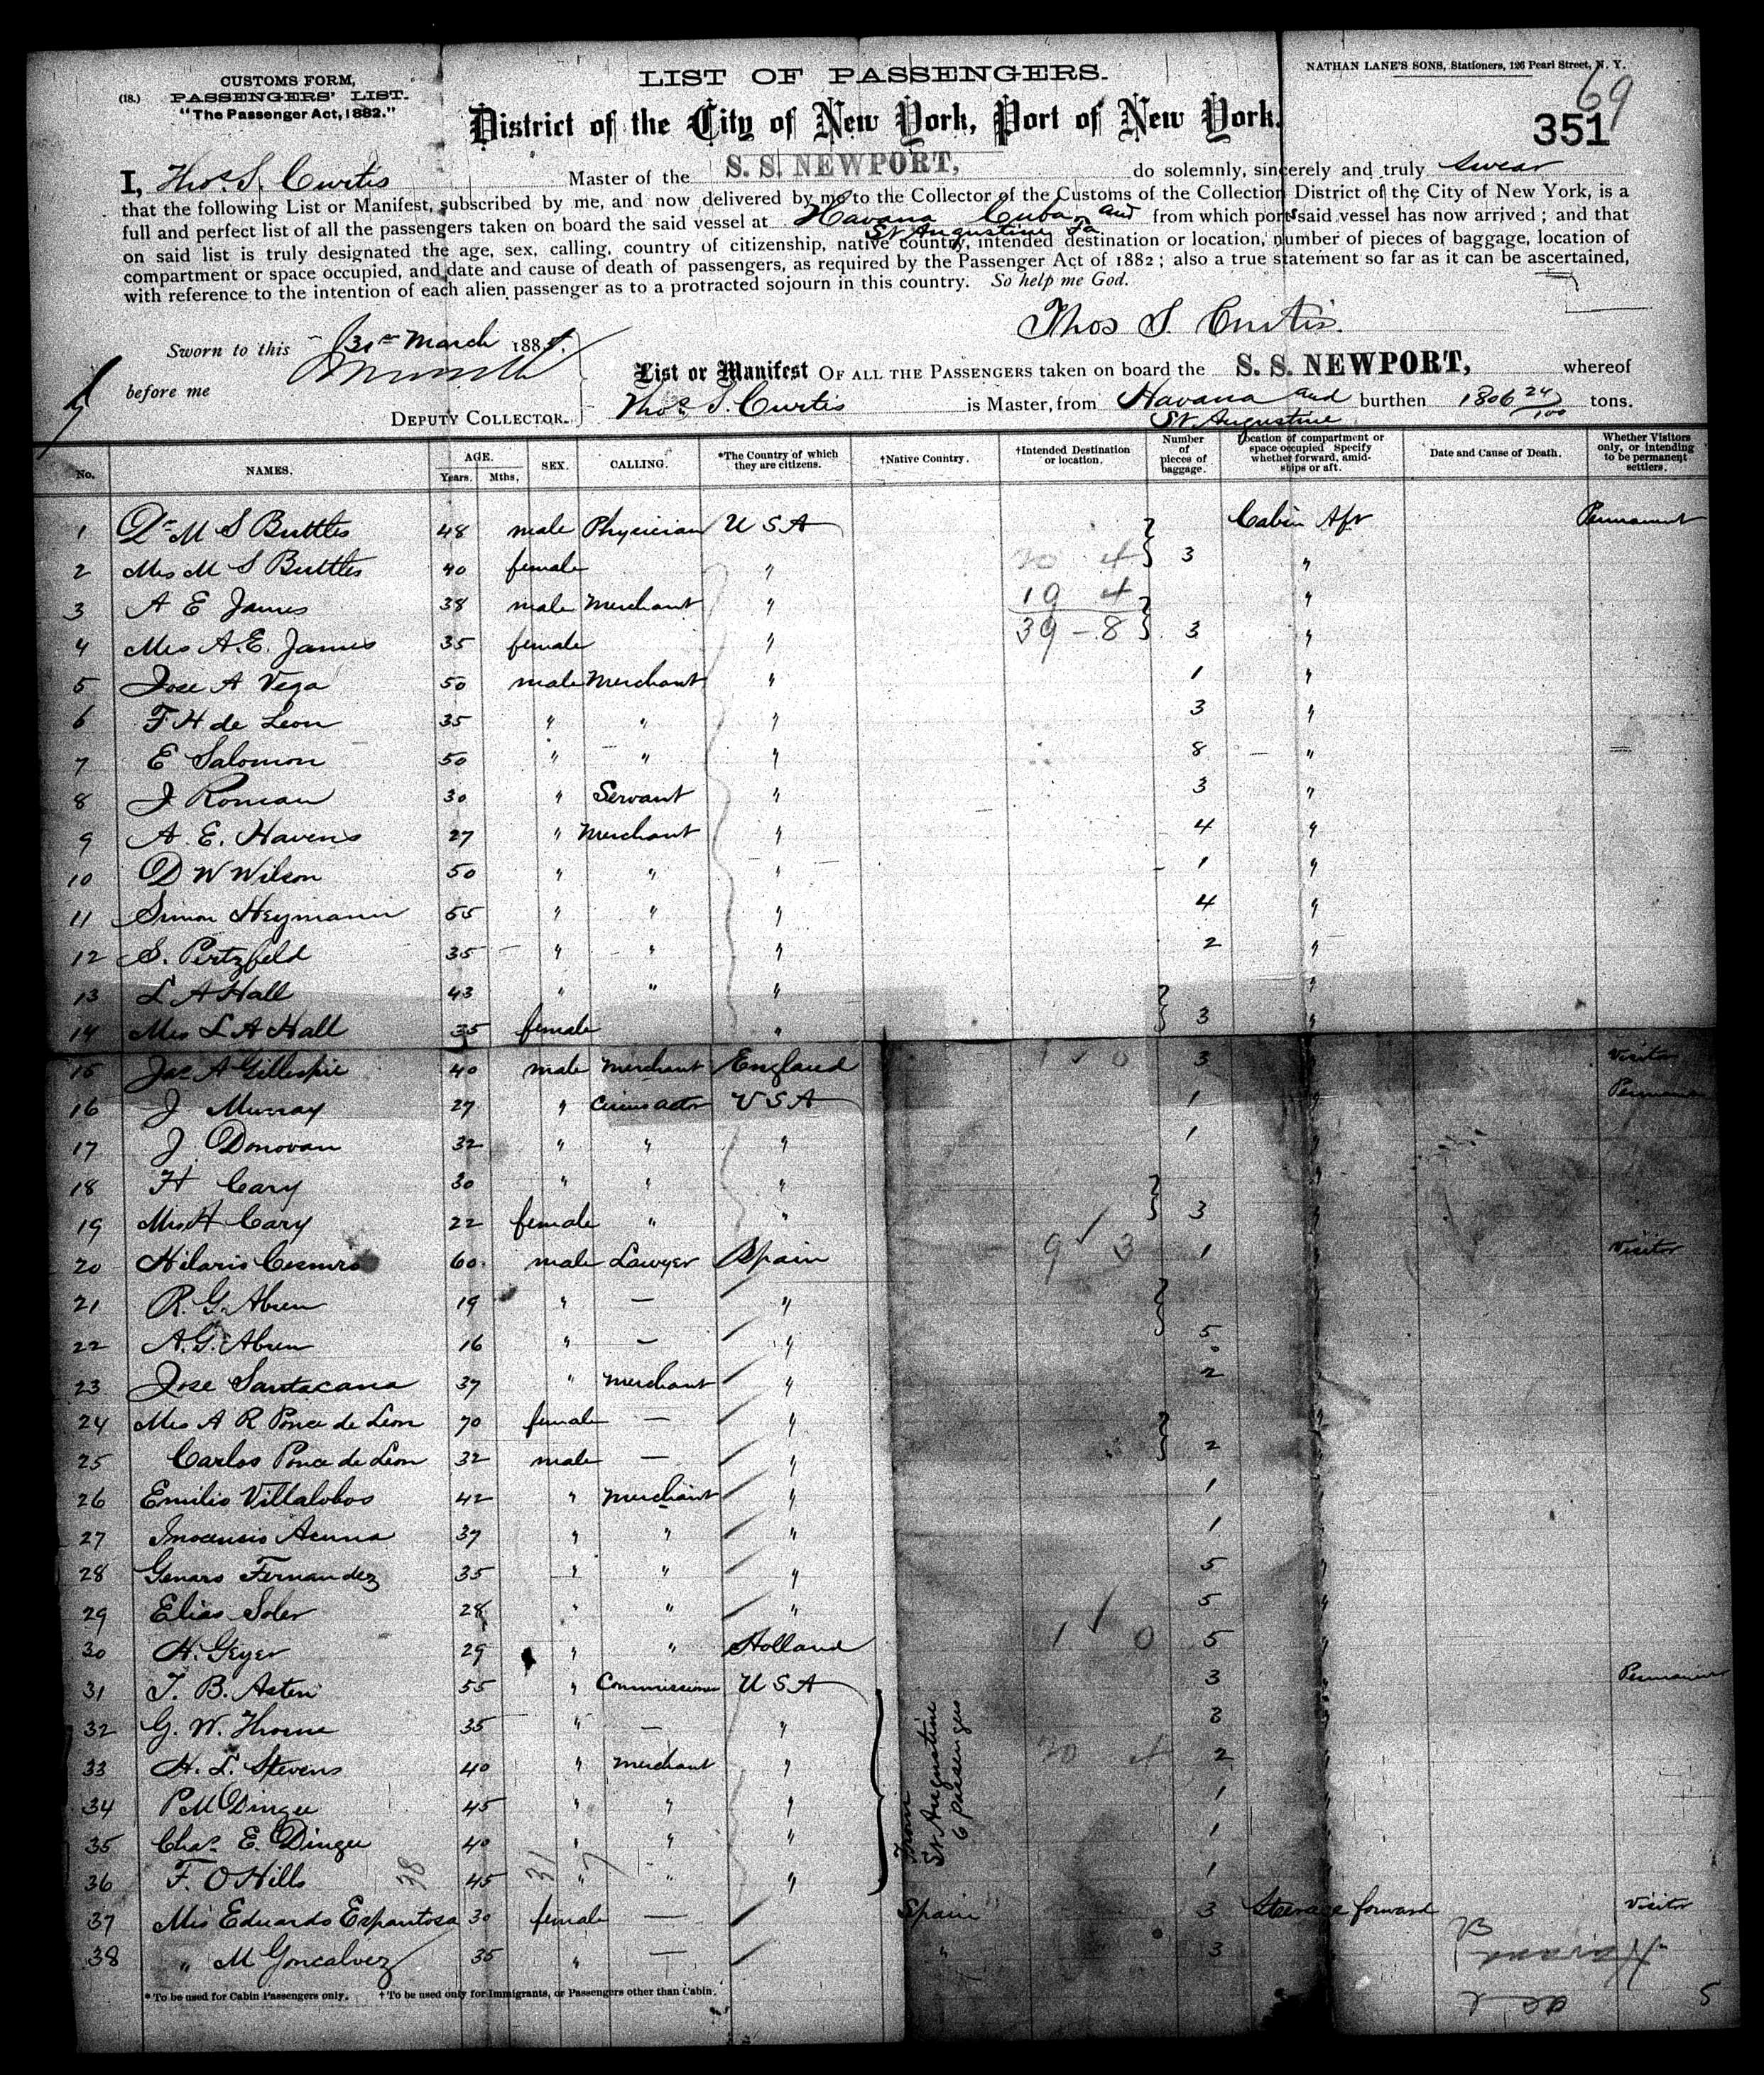 CUSTOMS FORM,
(18.) PASSENGERS' LIST.
"The Passenger Act, 1882."
LIST OF PASSENGERS.
NATHAN LANE'S SONS, Stationers, 126 Pearl Street, N. Y.
69
351
District of the City of New York, Port of New York.
I, Thos. S. Curtis Master of the S. S. NEWPORT, do solemnly, sincerely and truly swear
that the following List or Manifest, subscribed by me, and now delivered by me to the Collector of the Customs of the Collection District of the City of New York, is a
full and perfect list of all the passengers taken on board the said vessel at Havana Cuba, and from which ports said vessel has now arrived; and that
St Augustine Fa
on said list is truly designated the age, sex, calling, country of citizenship, native country, intended destination or location, number of pieces of baggage, location of
compartment or space occupied, and date and cause of death of passengers, as required by the Passenger Act of 1882; also a true statement so far as it can be ascertained,
with reference to the intention of each alien passenger as to a protracted sojourn in this country. So help me God.
Thos S. Curtis.
Sworn to this 31st March 188
before me
DEPUTY COLLECTOR.
List or Manifest OF ALL THE PASSENGERS taken on board the S. S. NEWPORT, whereof
Thos. S. Curtis is Master, from Havana and burthen 1806 24/100 tons.
St. Augustine
No. NAMES. AGE. Years. Mths, SEX. CALLING. *The Country of which they are citizens. †Native Country. †Intended Destination or location. Number of pieces of baggage. Location of compartment or space occupied Specify whether forward, amidships or aft. Date and Cause of Death. Whether Visitors only, or intending to be permanent settlers.
1 Dr M S Buttles 48 male Physician U S A Cabin Aft Permanent
2 Mrs M S Buttles 40 female " 20 4 3 "
3 A E James 38 male Merchant " 19 4 "
4 Mrs A. E. James 35 female " 39 - 8 3 "
5 Jose A Vega 50 male Merchant " 1 "
6 F H de Leon 35 " " " 3 "
7 E Salomon 50 " " " 8 "
8 J Roman 30 " Servant " 3 "
9 A. E. Havens 27 " Merchant " 4 "
10 D W Wilson 50 " " " 1 "
11 Simon Heymann 55 " " " 4 "
12 S. Pertzfeld 35 " " " 2 "
13 L A Hall 43 " " " "
14 Mrs L A Hall 35 female " 3 "
15 Jas A Gillespie 40 male Merchant England 1 0 3 " Visitor
16 J Murray 27 " Circus actor U S A 1 " Permanent
17 J Donovan 32 " " " 1 "
18 H Cary 30 " " " "
19 Mrs H Cary 22 female " " 3 "
20 Hilario 60 male Lawyer Spain 9 3 1 " Visitor
21 R. G. Abreu 19 " — " "
22 A. G. Abreu 16 " — " 5 "
23 Jose Santacana 37 " Merchant " 2 "
24 Mrs A R Ponce de Leon 70 female — " "
25 Carlos Ponce de Leon 32 male — " 2 "
26 Emilio Villalobos 42 " Merchant " 1 "
27 Inocensio Acuna 37 " " " 1 "
28 Genaro Fernandez 35 " " " 5 "
29 Elias Soler 28 " " " 5 "
30 H. Geyer 29 " " Holland 1 0 5 "
31 T. B. Asten 55 " Commissioner U S A 3 " Permanent
32 G. W. Thorne 35 " — " 3 "
33 H. L. Stevens 40 " Merchant " 20 4 2 "
34 P M Dingee 45 " " " 1 "
35 Chas. E. Dingee 40 " " " 1 "
36 F. O Hills 45 " " " 1 "
From St Augustine 6 passengers
38 31 7
37 Mrs Eduardo Espantosa 30 female — Spain 3 Steerage forward Visitor
38 " M Goncalvez 35 " — " 3
* To be used for Cabin Passengers only. † To be used only for Immigrants, or Passengers other than Cabin.
5